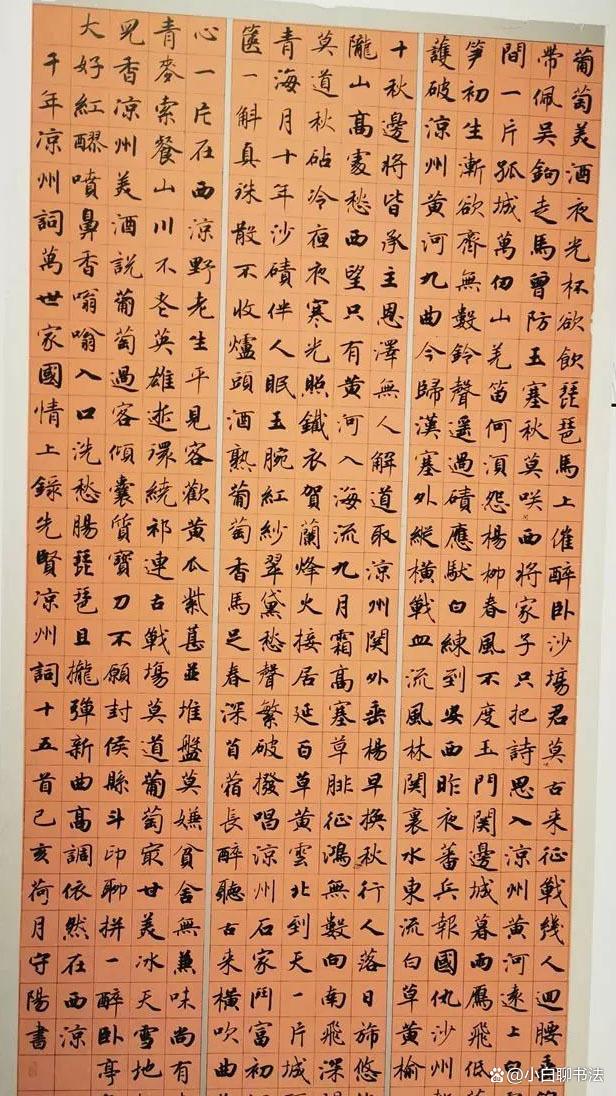 葡萄美酒夜光杯欲飲琵琶馬上催醉卧沙場君莫古來征戰幾人迴腰
帶佩吳鉤走馬曾防玉塞秋莫咲西將家子只把詩思入涼州黃河遠上白
間一片孤城萬仞山羌笛何須怨楊柳春風不度玉門關邊城暮雨鴈飛低
筍初生漸欲齊無數鈴聲遥過磧應馱白練到安西昨夜蕃兵報國仇沙州
護破涼州黃河九曲今歸漢塞外縱橫戰血流風林關裏水東流白草黃榆
十秋邊將皆承主恩澤無人解道取涼州關外垂楊早換秋行人落日旆悠
隴山高處愁西望只有黃河入海流九月霜高塞草腓征鴻無數向南飛深
莫道秋砧冷夜夜寒光照鐵衣賀蘭烽火接居延百草黃雲北到天一片城
青海月十年沙磧伴人眠玉腕紅紗翠黛愁聲繁破撥唱涼州石家鬥富初
篋一斛真珠散不收爐頭酒熟葡萄香馬足春深苜蓿長醉聽古來橫吹曲
心一片在西涼野老生平見客歡黃瓜紫葚並堆盤莫嫌貧舍無兼味尚有
青麥索餐山川不老英雄逝環繞祁連古戰場莫道葡萄最甘美冰天雪地
見香涼州美酒說葡萄過客傾囊質寶刀不願封侯縣斗印聊拼一醉卧亭
大好紅醪噴鼻香嗡嗡入口洗愁腸琵琶且攏彈新曲高調依然在西涼
千年涼州詞萬世家國情上錄先賢涼州詞十五首己亥荷月守陽書
@小白聊书法